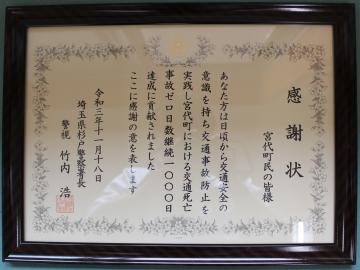 感謝状
宮代町民の皆様
あなた方は日頃から交通安全の
意識を持ち交通事故防止を
実践し宮代町における交通死亡
事故ゼロ日数継続一〇〇〇日
達成に貢献されました
ここに感謝の意を表します
令和三年十一月十八日
埼玉県杉戸警察署長
警視 竹内 浩